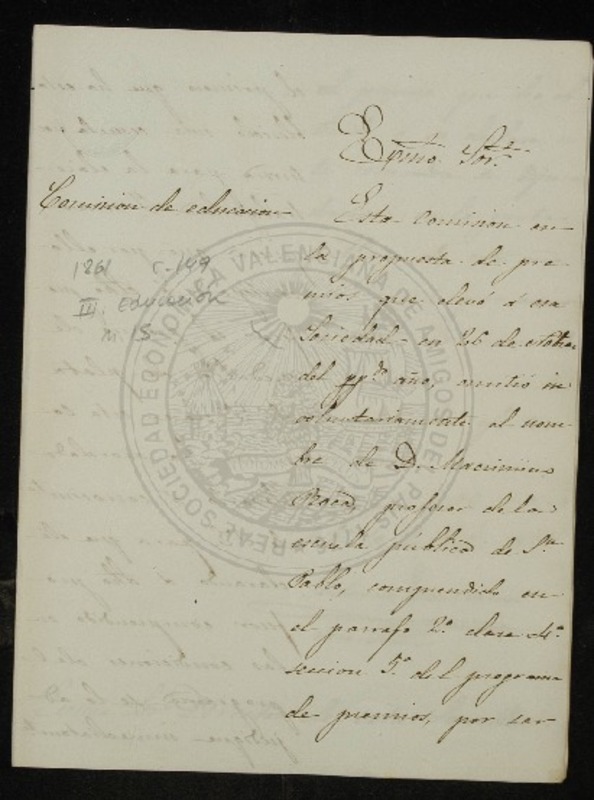 Exmo. Sor.
Comision de educacion
Esta comision en
la propuesta de pre-
mios que elevó á esa
Sociedad en 26 de octubre
del pp.do año, omitió in
voluntariamente el nom-
bre de D. Macsimino
profesor de la
escuela pública de Sn.
Pablo, comprendido en
el parrafo 2.º clase 4.ª
seccion 5.ª del programa
de premios, por ser
1861 C-149
III. Educación
n. 5
REAL SOCIEDAD ECONOMICA VALENCIANA DE AMIGOS DEL PAIS